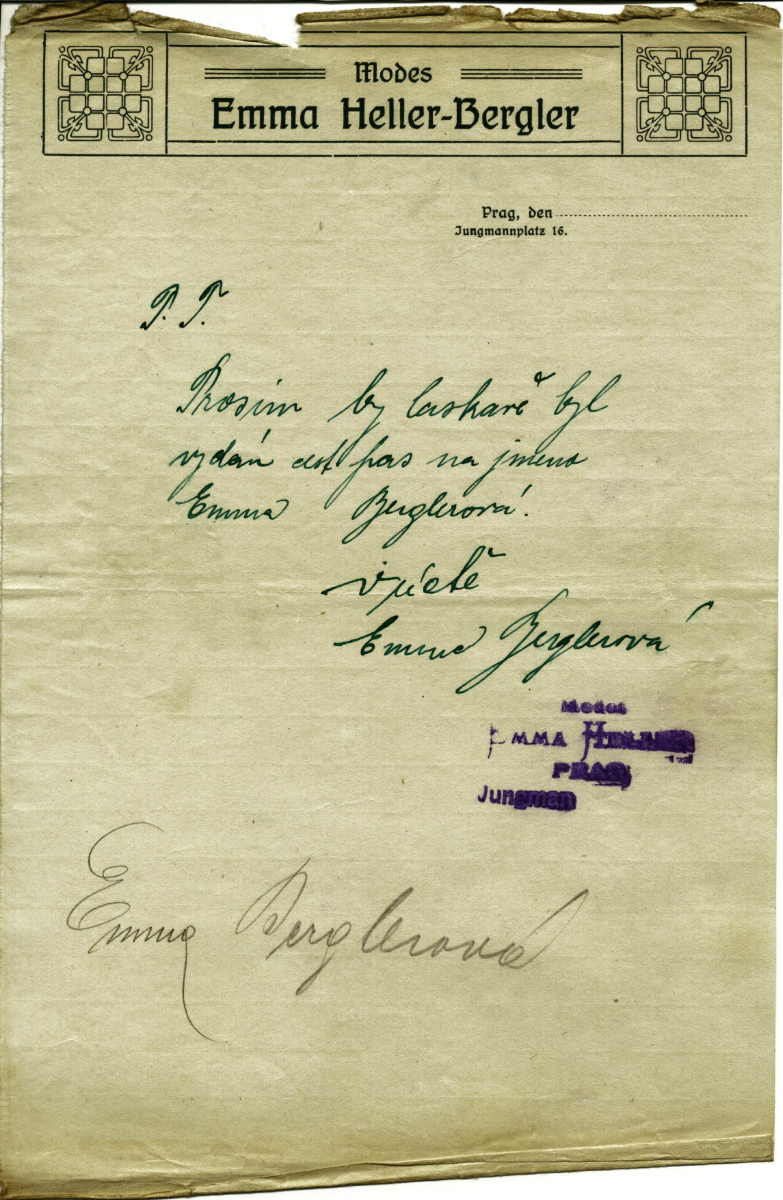 Modes
Emma Heller-Bergler
Prag, den
Jungmannplatz 16.
P. T.
Prosim by laskavě byl
vydán cest pas na jmeno
Emma Berglerová.
v úctě
Emma Berglerová
Modes
EMMA HELLER
PRAG
Jungman
Emma Berglerová